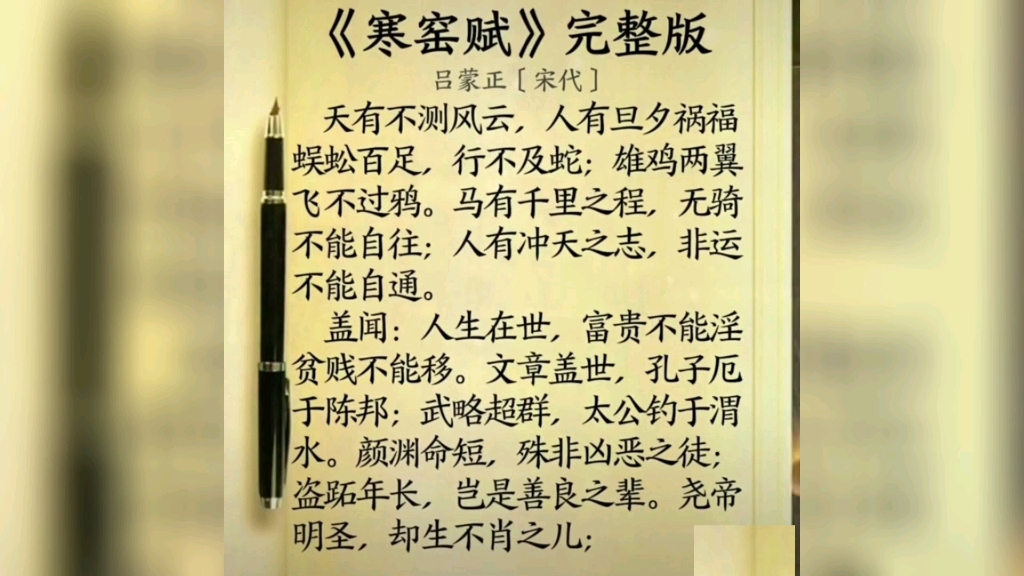 《寒窑赋》完整版
吕蒙正［宋代］
天有不测风云，人有旦夕祸福
蜈蚣百足，行不及蛇；雄鸡两翼
飞不过鸦。马有千里之程，无骑
不能自往；人有冲天之志，非运
不能自通。
盖闻：人生在世，富贵不能淫
贫贱不能移。文章盖世，孔子厄
于陈邦；武略超群，太公钓于渭
水。颜渊命短，殊非凶恶之徒；
盗跖年长，岂是善良之辈。尧帝
明圣，却生不肖之儿；